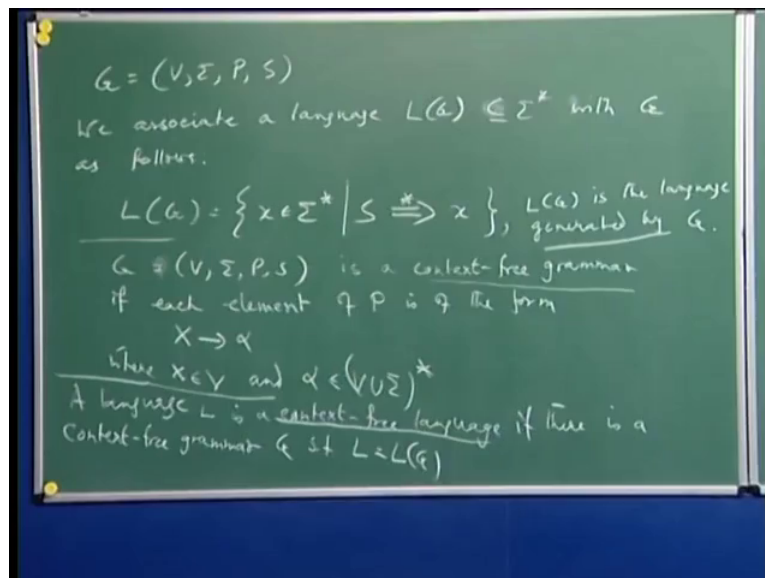 G = (V, Σ, P, S)
We associate a language L(G) ⊆ Σ* with G
as follows.
L(G) = { x ∈ Σ* | S ⇒* x }, L(G) is the language
generated by G.
G = (V, Σ, P, S) is a context-free grammar
if each element of P is of the form
X → α
where X ∈ V and α ∈ (V ∪ Σ)*
A language L is a context-free language if there is a
Context-free grammar G st L = L(G)